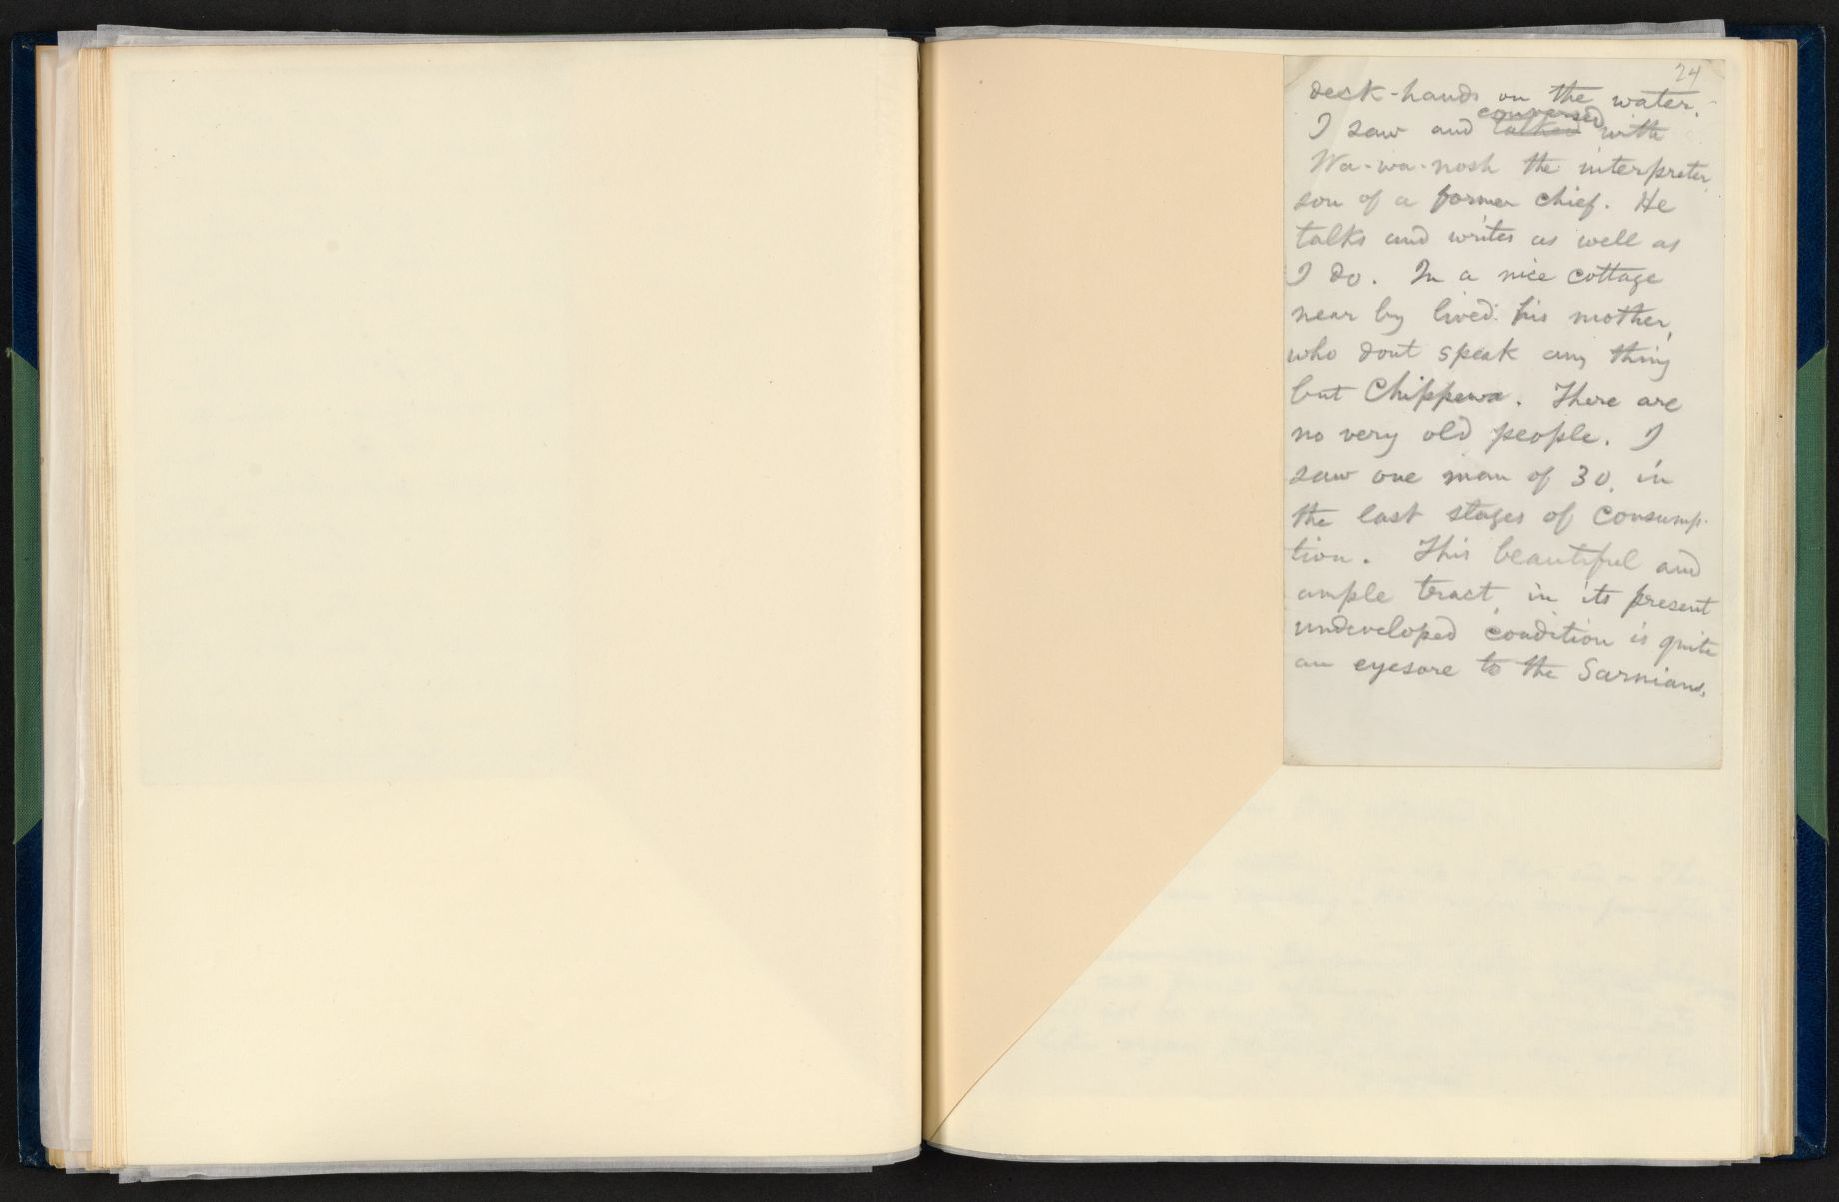 24
deck-hands on the water.
conversed
I saw and talked with
Wa-wa-nosh the interpreter,
son of a former chief. He
talks and writes as well as
I do. In a nice cottage
near by lived his mother,
who dont speak any thing
but Chippewa. There are
no very old people. I
saw one man of 30, in
the last stages of consump-
tion. This beautiful and
ample tract, in its present
undeveloped condition is quite
an eyesore to the Sarnians.